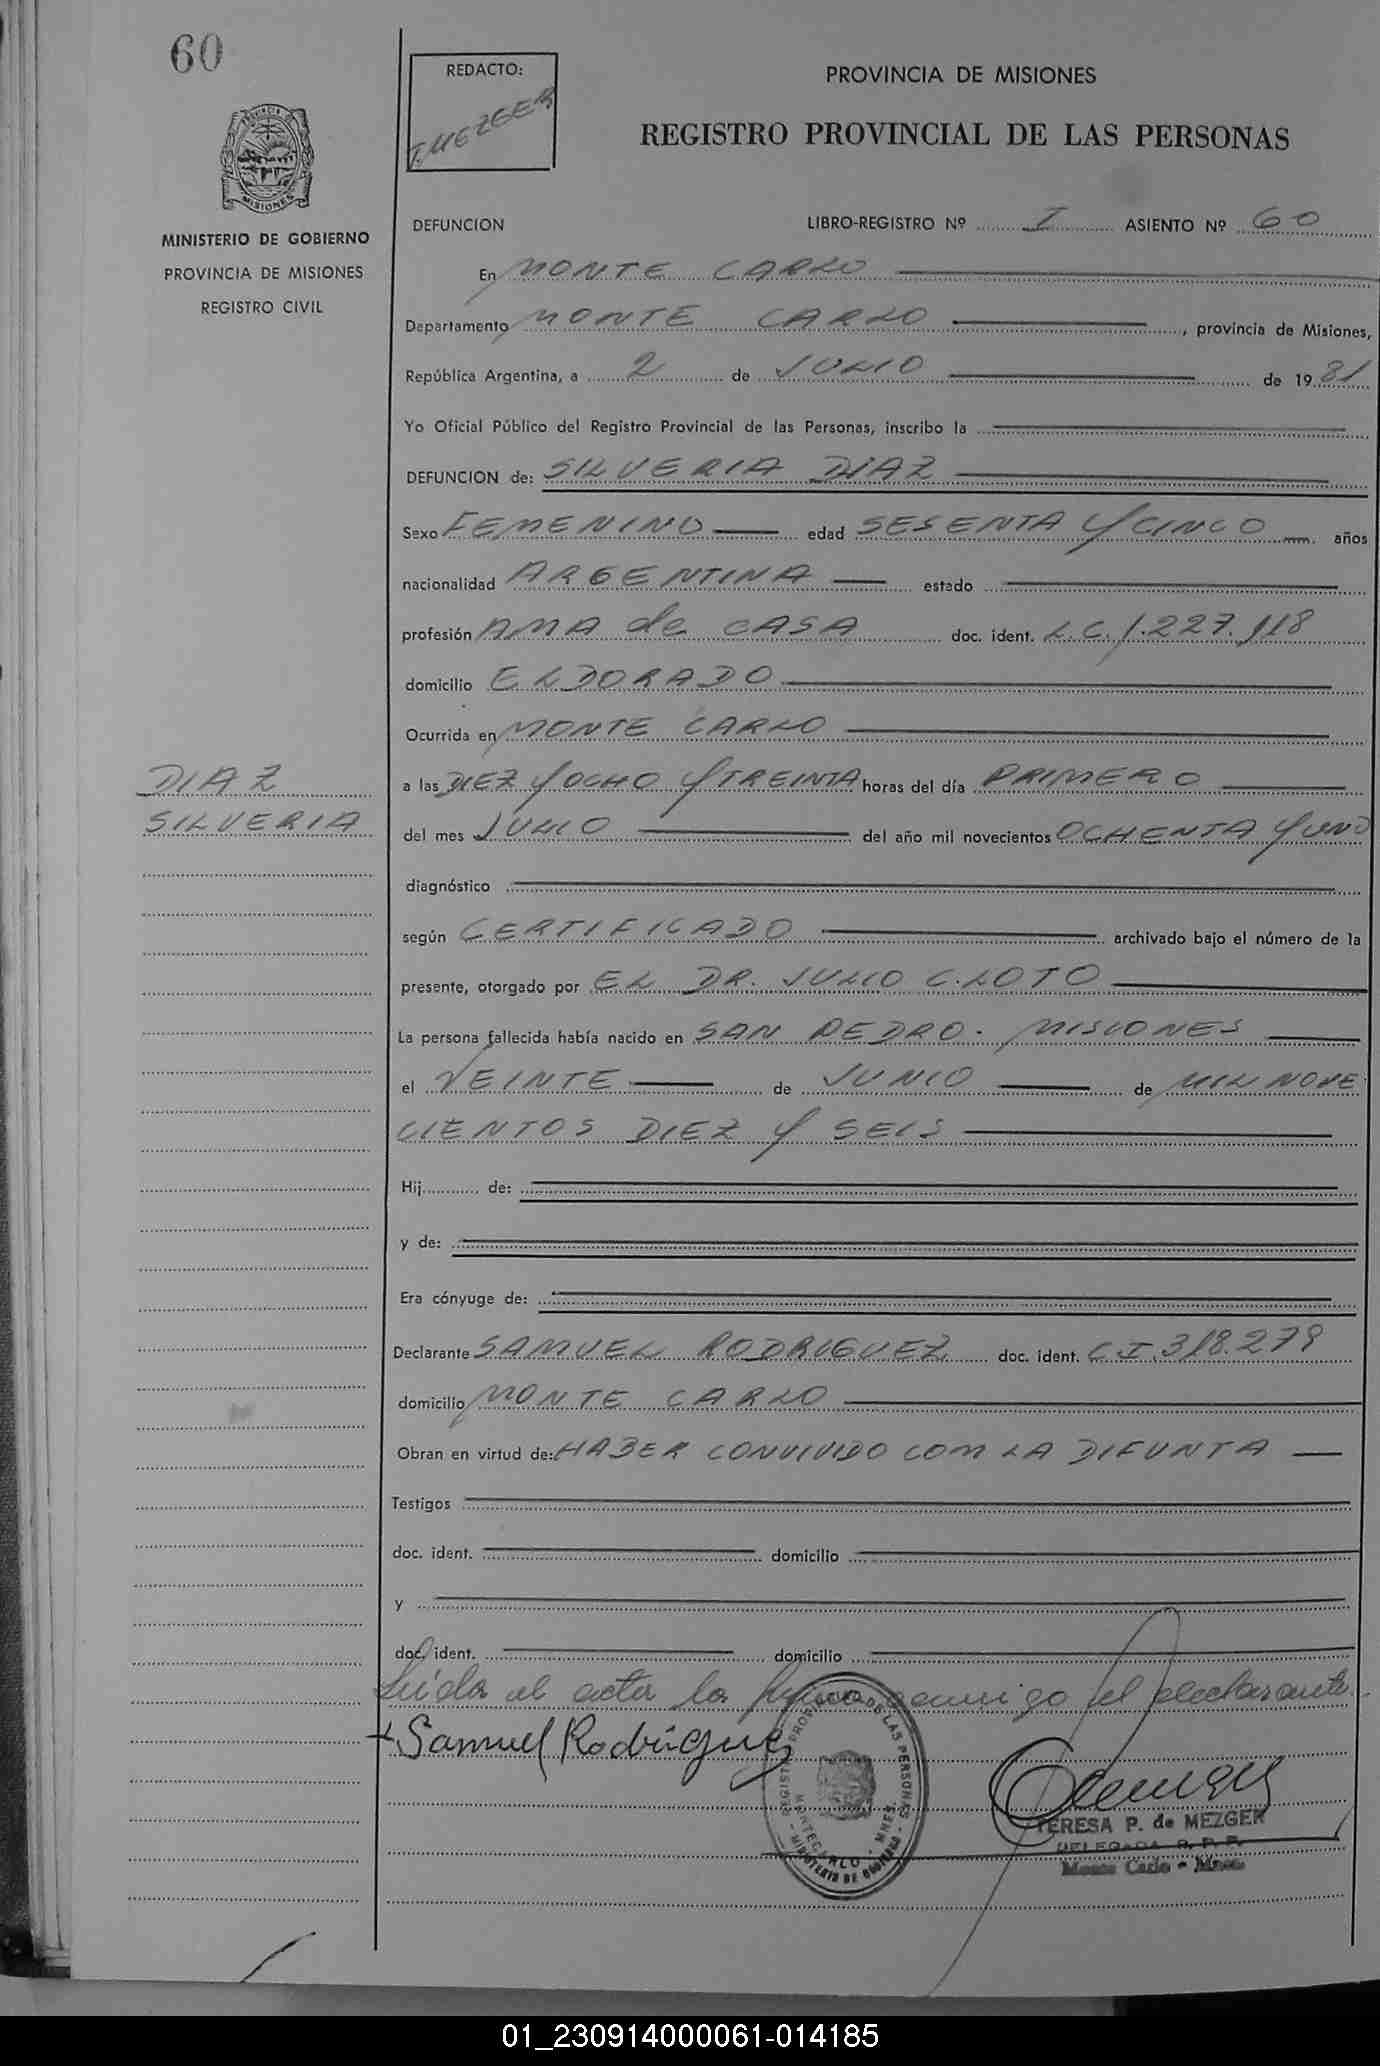 60
REDACTO:
T. MEZGER
PROVINCIA DE MISIONES
REGISTRO PROVINCIAL DE LAS PERSONAS
PROVINCIA DE
MISIONES
MINISTERIO DE GOBIERNO
PROVINCIA DE MISIONES
REGISTRO CIVIL
DEFUNCION
LIBRO-REGISTRO Nº I ASIENTO Nº 60
En MONTE CARLO
Departamento MONTE CARLO, provincia de Misiones,
República Argentina, a 2 de JULIO de 1981
Yo Oficial Público del Registro Provincial de las Personas, inscribo la
DEFUNCION de: SILVERIA DIAZ
Sexo FEMENINO edad SESENTA Y CINCO años
nacionalidad ARGENTINA estado
profesión AMA de CASA doc. ident. L.C. 1.227.118
domicilio ELDORADO
Ocurrida en MONTE CARLO
DIAZ
SILVERIA
a las DIEZ Y OCHO Y TREINTA horas del día PRIMERO
del mes JULIO del año mil novecientos OCHENTA Y UNO
diagnóstico
según CERTIFICADO archivado bajo el número de la
presente, otorgado por EL DR. JULIO C. LOTO
La persona fallecida había nacido en SAN PEDRO. MISIONES
el VEINTE de JUNIO de MIL NOVE
CIENTOS DIEZ Y SEIS
Hij de:
y de:
Era cónyuge de:
Declarante SAMUEL RODRIGUEZ doc. ident. C.I. 318.279
domicilio MONTE CARLO
Obran en virtud de: HABER CONVIVIDO COM LA DIFUNTA
Testigos
doc. ident. domicilio
y
doc. ident. domicilio
Leída el acta la firma conmigo el declarante.
Samuel Rodríguez
REGISTRO PROVINCIAL DE LAS PERSONAS
MONTECARLO - MNES.
MINISTERIO DE GOBIERNO
TERESA P. de MEZGER
DELEGADA R. P. P.
Monte Carlo - Mnes.
01_230914000061-014185